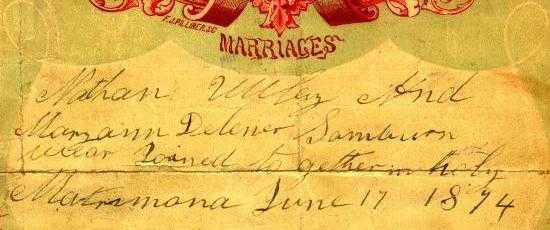 F.J. PILLINER. SC
MARRIAGES
Nathan And
Maryann Delener Samburn
wear Joined to gether in holy
Matrimona June 17 1874